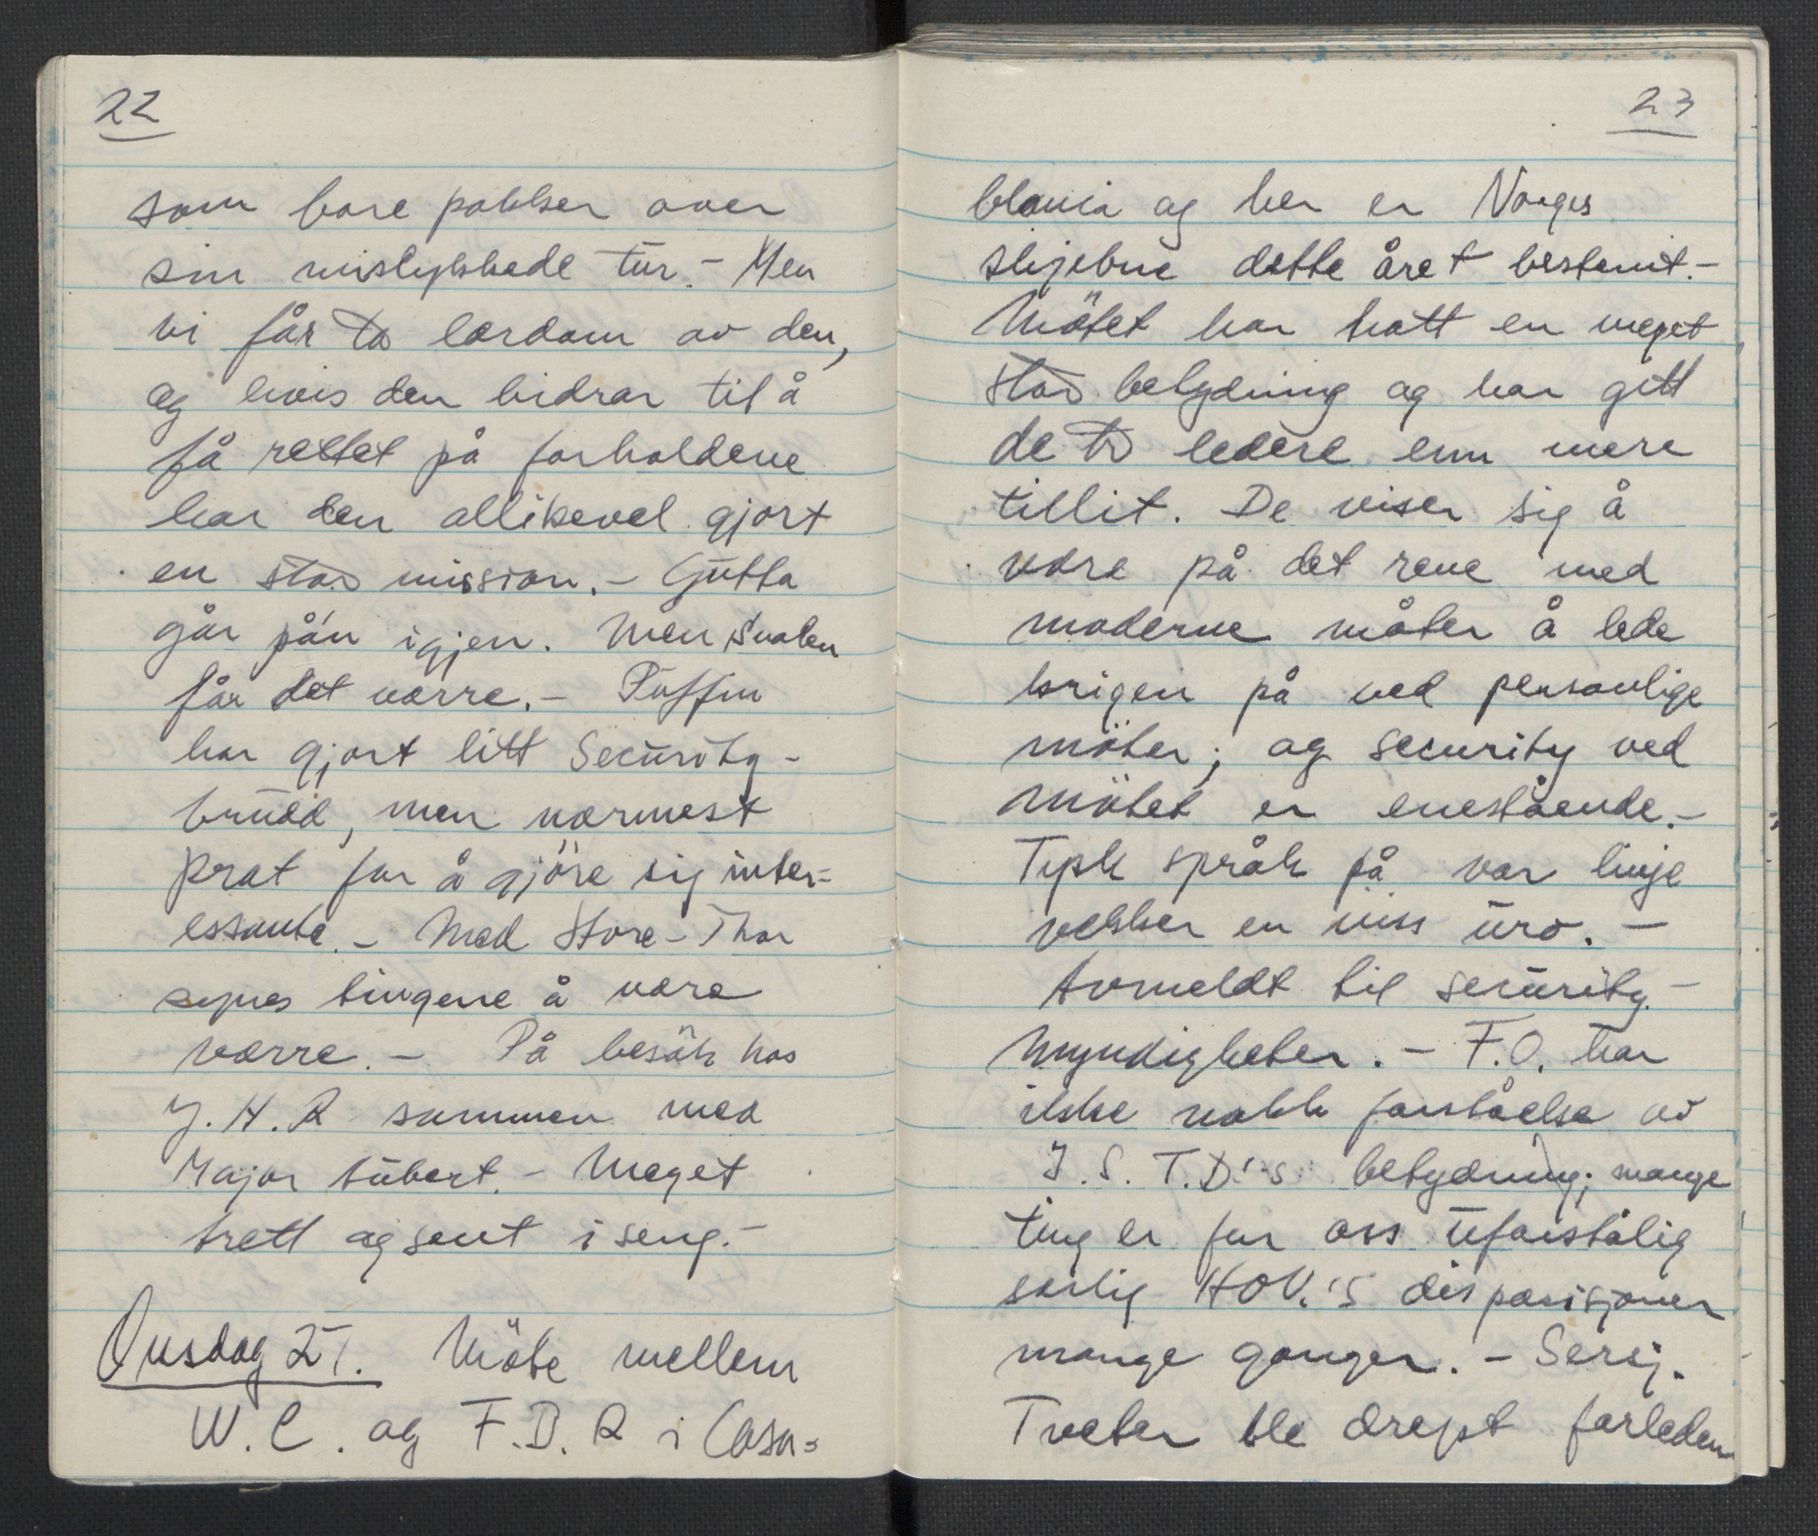 22
som bare pokker over
sin mislykkede tur. - Men
vi får ta lærdom av den,
og hvis den bidrar til å
få rettet på forholdene
har den allikevel gjort
en stor mission. - Gutta
går på'n igjen. Men Svalen
får det værre. - Puffin
har gjort litt Security-
brudd, men nærmest
prat for å gjöre sig inter-
essante. - Med Store-Thor
synes tingene å være
værre. - På besök hos
J. H. R sammen med
Major
 - Meget
trett og sent i seng. -
Onsdag 27. Möte mellem
W. C. og F. D. R i Casa-
23
blanca og her er Norges
skjebne dette året bestemt. -
Mötet har hatt en meget
stor betydning og har gitt
de to ledere enn mere
tillit. De viser sig å
være på det rene med
moderne måter å lede
krigen på ved personlige
möter; og security ved
mötet er enestående. -
Tysk språk på vår linje
vekker en viss uro. -
Avmeldt til security-
myndigheter. - F.O. har
ikke nokk forståelse av
I. S. T.D.'s betydning; mange
ting er for oss uforståelig
særlig HOV.'s disposisjoner
mange ganger. - Serj.
Tveter ble drept forleden